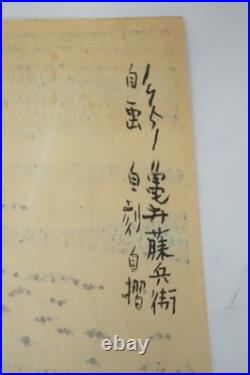 亀井藤兵衛
自画 自刻 自摺